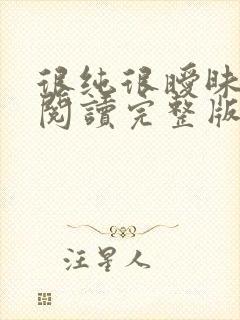 很純很曖昧
閱讀完整版
汪星人